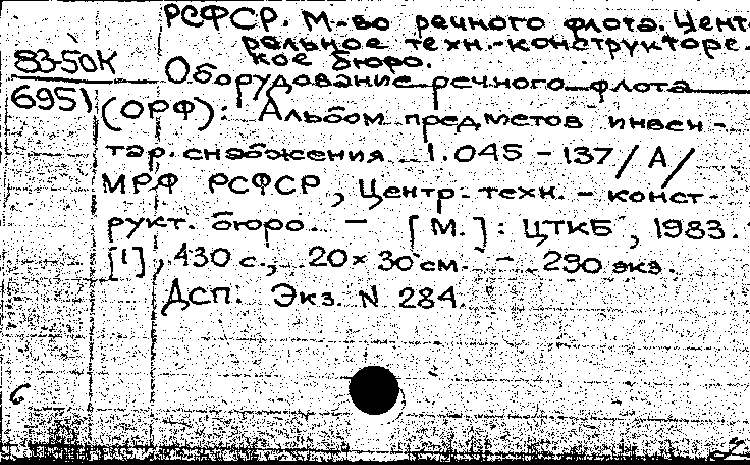 РСФСР. М-во речного флота. Цент-
ральное техн.-конструкторс.
кое бюро.
83-50К
6951
Оборудование речного флота
(ОРФ): Альбом предметов инвен-
тар. снабжения 1.045 - 137/А/
МРФ РСФСР, Центр. техн. - конст-
рукт. бюро. — [М.]: ЦТКБ, 1983.
[1], 430 с., 20 × 30 см. - 290 экз.
ДСП. Экз. N 284.
6